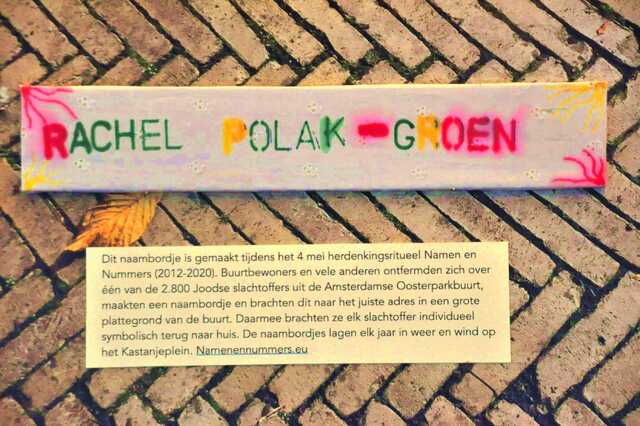 RACHEL POLAK-GROEN
Dit naambordje is gemaakt tijdens het 4 mei herdenkingsritueel Namen en
Nummers (2012-2020). Buurtbewoners en vele anderen ontfermden zich over
één van de 2.800 Joodse slachtoffers uit de Amsterdamse Oosterparkbuurt,
maakten een naambordje en brachten dit naar het juiste adres in een grote
plattegrond van de buurt. Daarmee brachten ze elk slachtoffer individueel
symbolisch terug naar huis. De naambordjes lagen elk jaar in weer en wind op
het Kastanjeplein. Namenennummers.eu